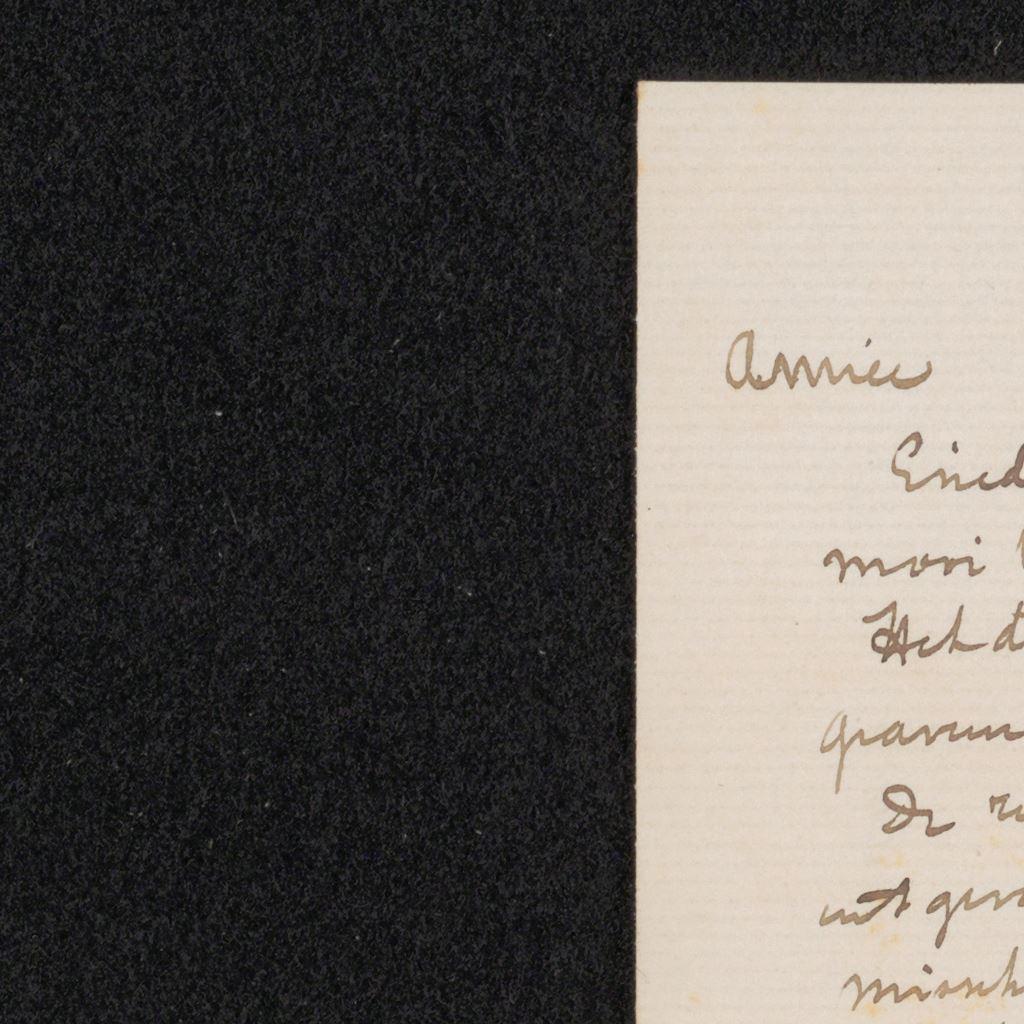 Amice
Eind
mooi
Het d
gravun
De
uit gev
missch